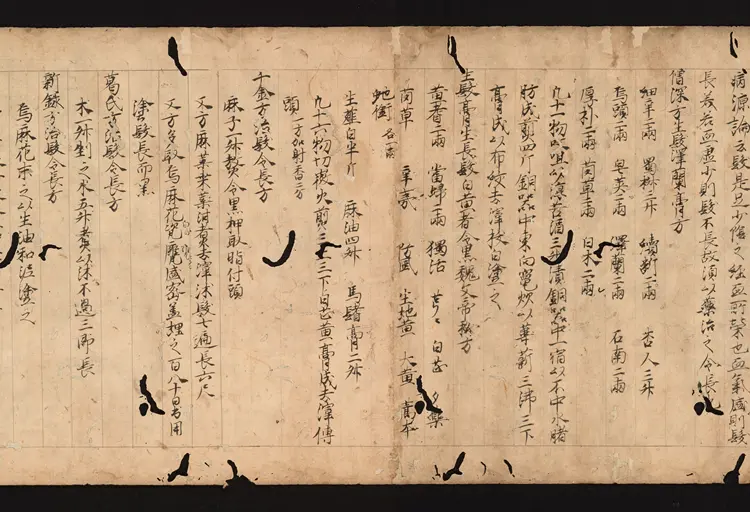 病源論云髮是足少陰之經血所榮也血氣盛則髮
長若血虛少則髮不長故須以藥治之令長
僧深方生髮澤蘭膏方
細辛二兩 蜀椒三升 續斷二兩 杏人三升
烏頭二兩 皂莢二兩 澤蘭二兩 石南二兩
厚朴二兩 莽草二兩 白朮二兩
凡十一物㕮咀以淳苦酒三升漬銅器中一宿以不中水猪
肪成煎四斤銅器中東向竈炊以葦薪三沸三下
膏成以布絞去滓拔白塗之
生髮膏生長髮白黃者令黑魏文帝秘方
黃耆二兩 當歸二兩 獨活 白芷 夕藥
莽草 辛夷 防風 生地黃 大黃 藁本
蛇銜 各一兩
生薤白半斤 麻油四升 馬鬐膏二升
凡十六物切微火煎三上三下白芷黃膏成去滓傅
頭 一方加射香二分
千金方治髮令長方
麻子一升熬令黑押取脂付頭
又方麻葉桑葉泔煮去滓沐髮七遍長六尺
又方多取烏麻花瓷甕盛密蓋埋之百八十日出用
塗髮長而黑
葛氏方治髮令長方
木一升剉之水五升煮以沐不過三即長
新錄方治髮令長方
烏麻花末之以生油和泥塗之